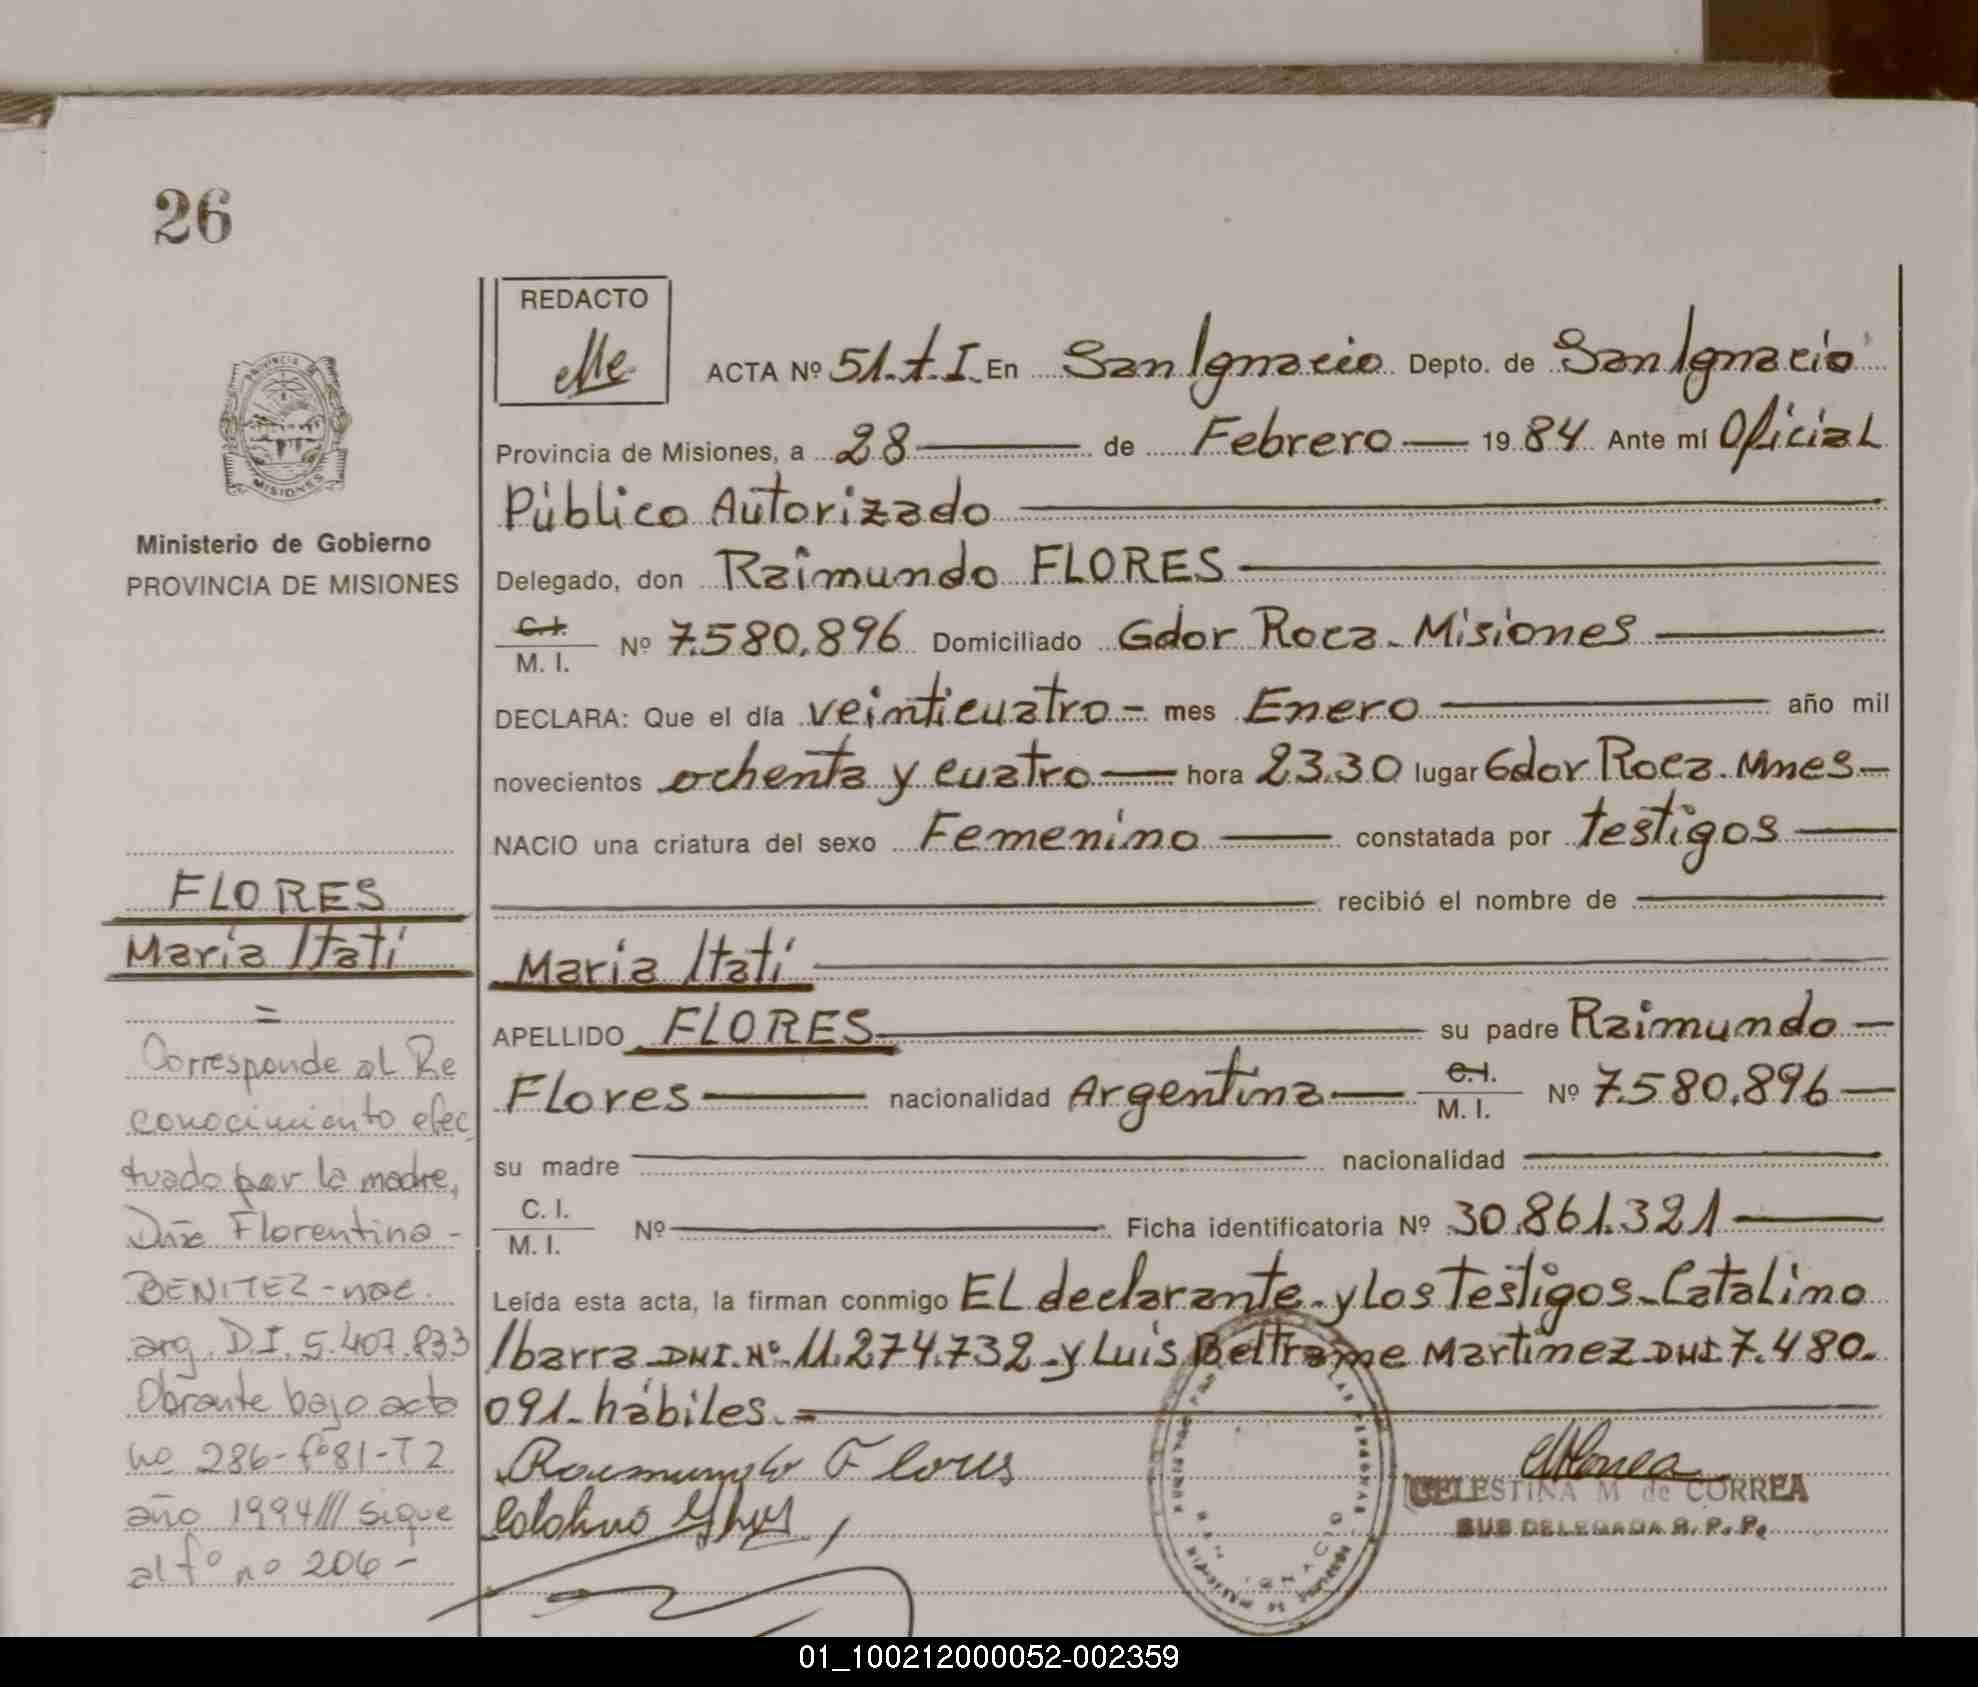 26
REDACTO
ACTA Nº 51.t.I. En San Ignacio Depto. de San Ignacio
Provincia de Misiones, a 28 de Febrero 19 84 Ante mí Oficial
Público Autorizado
Delegado, don Raimundo FLORES
C.I.
M. I. Nº 7.580.896 Domiciliado Gdor Roca. Misiones
DECLARA: Que el día veinticuatro - mes Enero año mil
novecientos ochenta y cuatro hora 23.30 lugar Gdor Roca. Mnes -
NACIO una criatura del sexo Femenino constatada por testigos
recibió el nombre de
María Itatí
APELLIDO FLORES su padre Raimundo -
Flores nacionalidad Argentina C.I.
M. I. Nº 7.580.896 -
su madre nacionalidad
C. I.
M. I. Nº Ficha identificatoria Nº 30.861.321
Leída esta acta, la firman conmigo El declarante - y los Testigos - Catalino
Ibarra DNI. Nº 11.274.732 - y Luis Beltrame Martinez DNI 7.480.
091 - hábiles. =
Raimundo Flores
CELESTINA M de CORREA
SUB DELEGADA R. P. P.
PROVINCIA
MISIONES
Ministerio de Gobierno
PROVINCIA DE MISIONES
FLORES
María Itatí
=
Corresponde al Re
conocimiento efec
tuado por la madre,
Dña Florentina -
BENITEZ - nac.
arg. D.I. 5.407.833
Obrante bajo acta
no 286 - fº 81 - T 2
año 1994 /// sigue
al fº nº 206 -
01_100212000052-002359